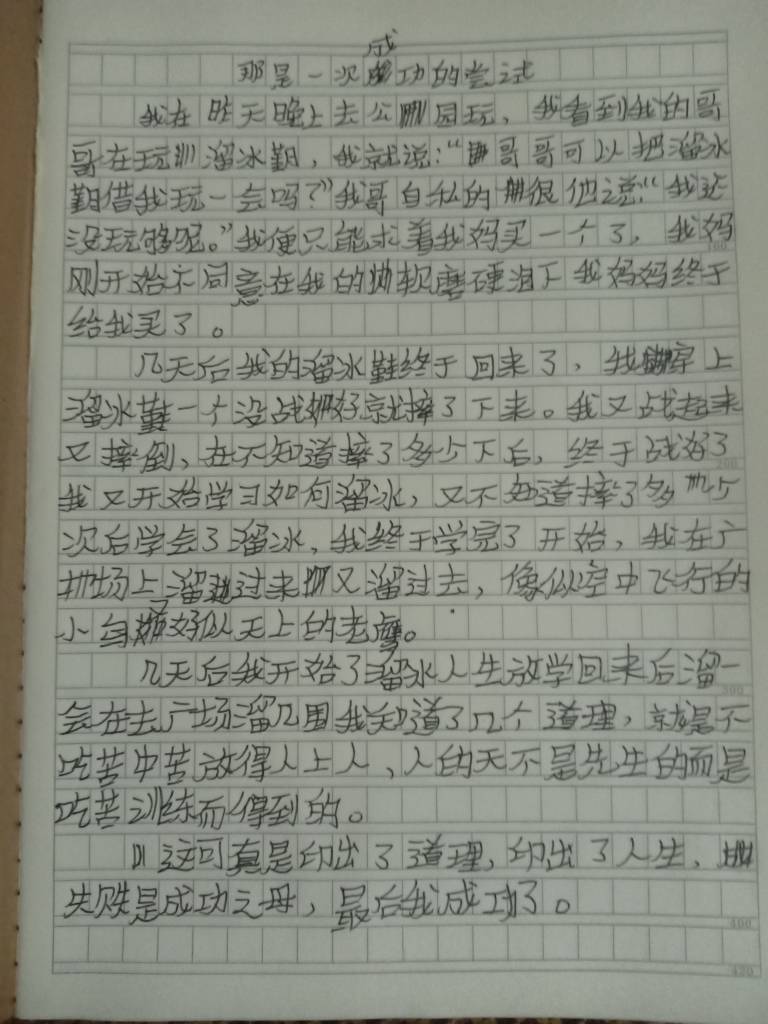 那是一次成功的尝试
我在昨天晚上去公园玩，我看到我的哥
哥在玩溜冰鞋，我就说：“哥哥可以把溜冰
鞋借我玩一会吗？”我哥自私的很他说：“我还
没玩够呢。”我便只能求着我妈买一个了，我妈
刚开始不同意在我的软磨硬泡下我妈妈终于
给我买了。
几天后我的溜冰鞋终于回来了，我穿上
溜冰鞋一个没战好就摔了下来。我又战起来
又摔倒，在不知道摔了多少下后，终于战好了
我又开始学习如何溜冰，又不知道摔了多少
次后学会了溜冰，我终于学完了开始，我在广
场上溜过来又溜过去，像似空中飞行的
小鸟又好似天上的老鹰。
几天后我开始了溜冰人生放学回来后溜一
会在去广场溜几围我知道了几个道理，就是不
吃苦中苦放得人上人，人的天不是先生的而是
吃苦训练而得到的。
这可真是印出了道理，印出了人生，
失败是成功之母，最后我成功了。
100
200
300
400
420